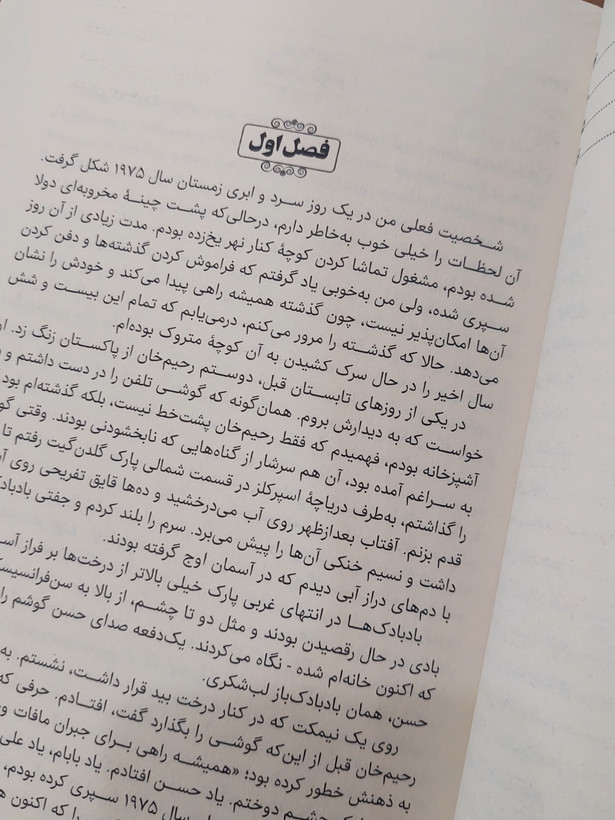 فصل اول
شخصیت فعلی من در یک روز سرد و ابری زمستان سال ۱۹۷۵ شکل گرفت.
آن لحظات را خیلی خوب به‌خاطر دارم، درحالی‌که پشت چینهٔ مخروبه‌ای دولا
شده بودم، مشغول تماشا کردن کوچهٔ کنار نهر یخ‌زده بودم. مدت زیادی از آن روز
سپری شده، ولی من به‌خوبی یاد گرفتم که فراموش کردن گذشته‌ها و دفن کردن
آن‌ها امکان‌پذیر نیست، چون گذشته همیشه راهی پیدا می‌کند و خودش را نشان
می‌دهد. حالا که گذشته را مرور می‌کنم، درمی‌یابم که تمام این بیست و شش
سال اخیر را در حال سرک کشیدن به آن کوچهٔ متروک بوده‌ام.
در یکی از روزهای تابستان قبل، دوستم رحیم‌خان از پاکستان زنگ زد. از
خواست که به دیدارش بروم. همان‌گونه که گوشی تلفن را در دست داشتم و
آشپزخانه بودم، فهمیدم که فقط رحیم‌خان پشت‌خط نیست، بلکه گذشته‌ام بود
به سراغم آمده بود، آن هم سرشار از گناه‌هایی که نابخشودنی بودند. وقتی
را گذاشتم، به‌طرف دریاچهٔ اسپرکلز در قسمت شمالی پارک گلدن‌گیت رفتم تا
قدم بزنم. آفتاب بعدازظهر روی آب می‌درخشید و ده‌ها قایق تفریحی روی
داشت و نسیم خنکی آن‌ها را پیش می‌برد. سرم را بلند کردم و جفتی
با دم‌های دراز آبی دیدم که در آسمان اوج گرفته بودند.
بادبادک‌ها در انتهای غربی پارک خیلی بالاتر از درخت‌ها بر فراز
بادی در حال رقصیدن بودند و مثل دو تا چشم، از بالا به
که اکنون خانه‌ام شده - نگاه می‌کردند. یک‌دفعه صدای حسن گوشم را
حسن، همان بادبادک‌باز لب‌شکری.
روی یک نیمکت که در کنار درخت بید قرار داشت، نشستم. به
رحیم‌خان قبل از این‌که گوشی را بگذارد گفت، افتادم. حرفی که
به ذهنش خطور کرده بود؛ «همیشه راهی برای جبران مافات
چشم دوختم. یاد حسن افتادم. یاد بابام، یاد علی
سال ۱۹۷۵ سپری کرده بودم،
را که اکنون